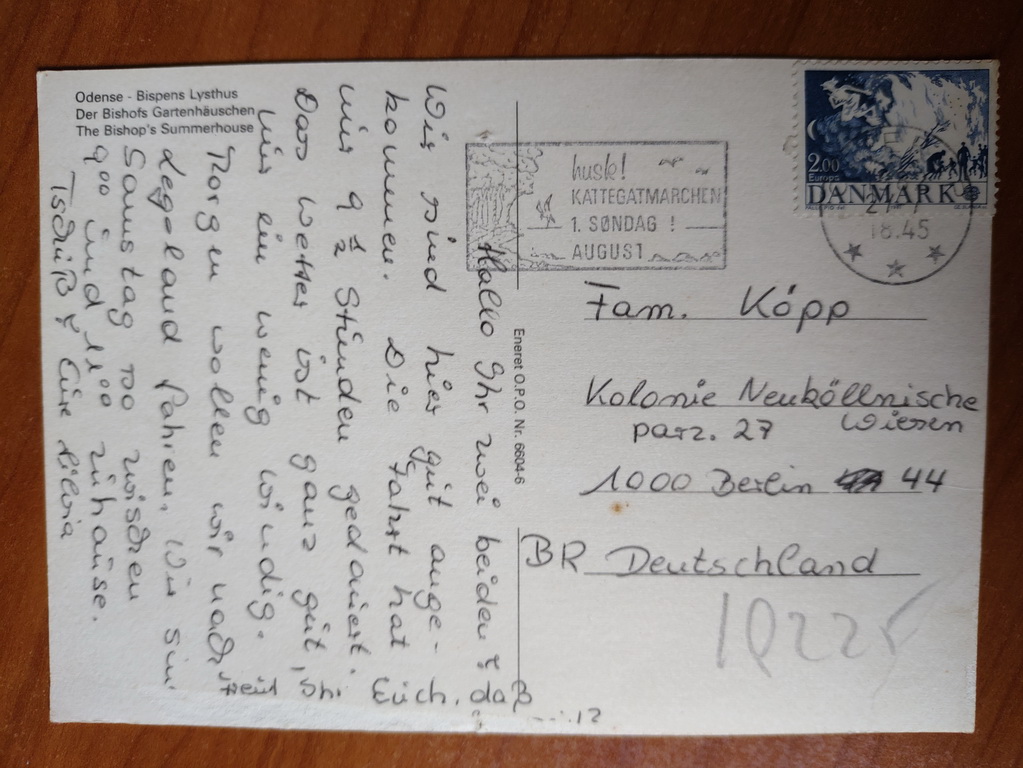 Odense - Bispens Lysthus
Der Bishofs Gartenhäuschen
The Bishop's Summerhouse
Hallo Ihr zwei beiden!
Wir sind hier gut ange-
kommen. Die Fahrt hat
nur 9 1/2 Stunden gedauert.
Das Wetter ist ganz gut,
nur ein wenig windig.
Morgen wollen wir nach
Legoland fahren. Wir sin
Samstag so zwischen
9⁰⁰ und 11⁰⁰ zuhause.
Tschüß Eure Silvia
Euch, daß
Eneret O.P.O. Nr. 6604-6
husk!
KATTEGATMARCHEN
1. SØNDAG !
AUGUST
2.00
Europa
DANMARK
18.45
Fam. Köpp
Kolonie Neuköllnische
Wiesen
parz. 27
1000 Berlin 44
BR Deutschland